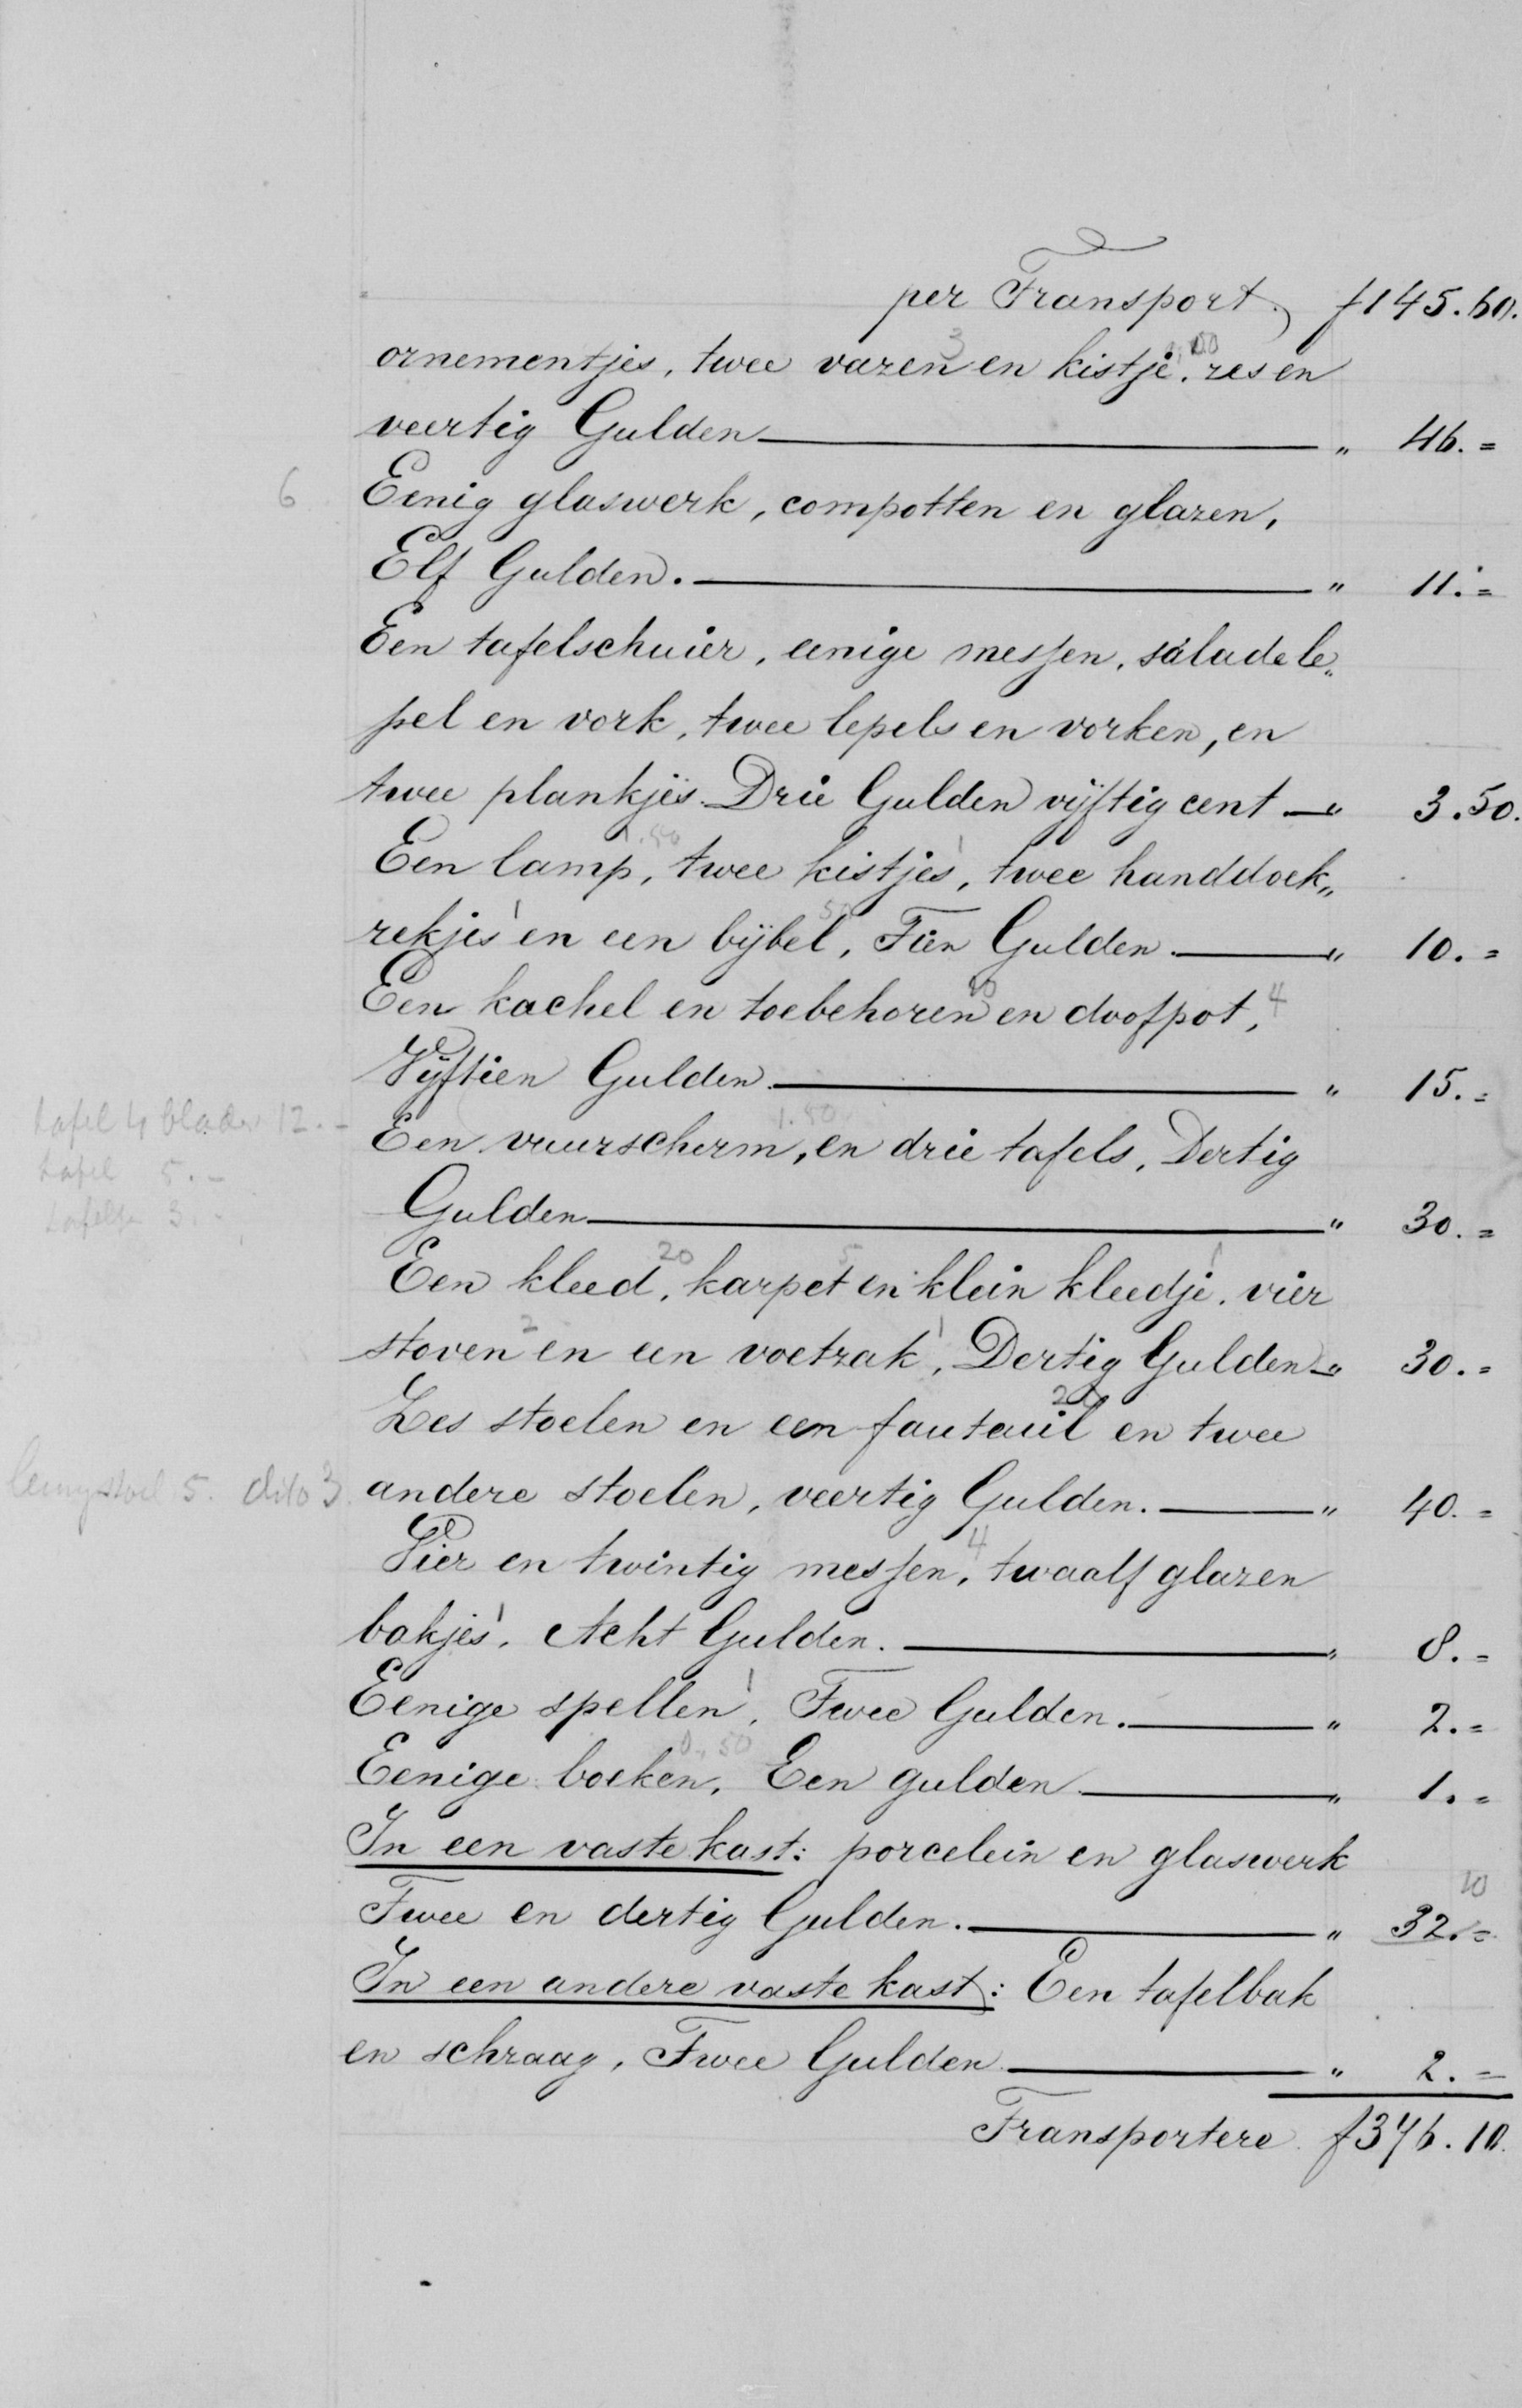 per Transport. f 145.60.
ornementjes, twee vazen 3 en kistje. zes en
veertig Gulden " 46.=
6 Eenig glaswerk, compotten en glazen,
Elf Gulden. " 11.=
Een tafelschuier, eenige messen, salade le„
pel en vork, twee lepels en vorken, en
twee plankjes. Drie Gulden vijftig cent " 3.50.
1.50 1
Een lamp, twee kistjes, twee handdoek„
1 50
rekjes en een bijbel, Tien Gulden. " 10.=
10 4
Een kachel en toebehoren en doofpot,
Vijftien Gulden. " 15.=
tafel 4 blader 12.- 1.50
Een vuurscherm, en drie tafels, Dertig
tafel 5.-
Gulden " 30.=
tafeltje 3.-
20 5 1
Een kleed, karpet en klein kleedje. vier
2 1
stoven en een voetzak, Dertig Gulden " 30.=
20
Zes stoelen en een fauteuil en twee
5. dito 3. andere stoelen, veertig Gulden. " 40.=
4
Vier en twintig messen, twaalf glazen
1
bakjes. Acht Gulden. " 8.=
1
Eenige spellen, Twee Gulden. " 2.=
0,50
Eenige boeken, Een gulden " 1.=
In een vaste kast: porcelein en glaswerk
10
Twee en dertig Gulden. " 32.=
In een andere vaste kast: Een tafelbak
en schraag, Twee Gulden " 2.=
Transportere f 376.10.